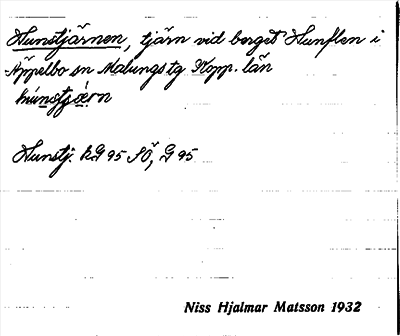 Hunstjärnen, tjärn vid berget Hunflen i
Äppelbo sn Malungs tg Kopp. län
húnstjæ̀rn
Hunstj. kG 95 SÖ, G 95
Niss Hjalmar Matsson 1932